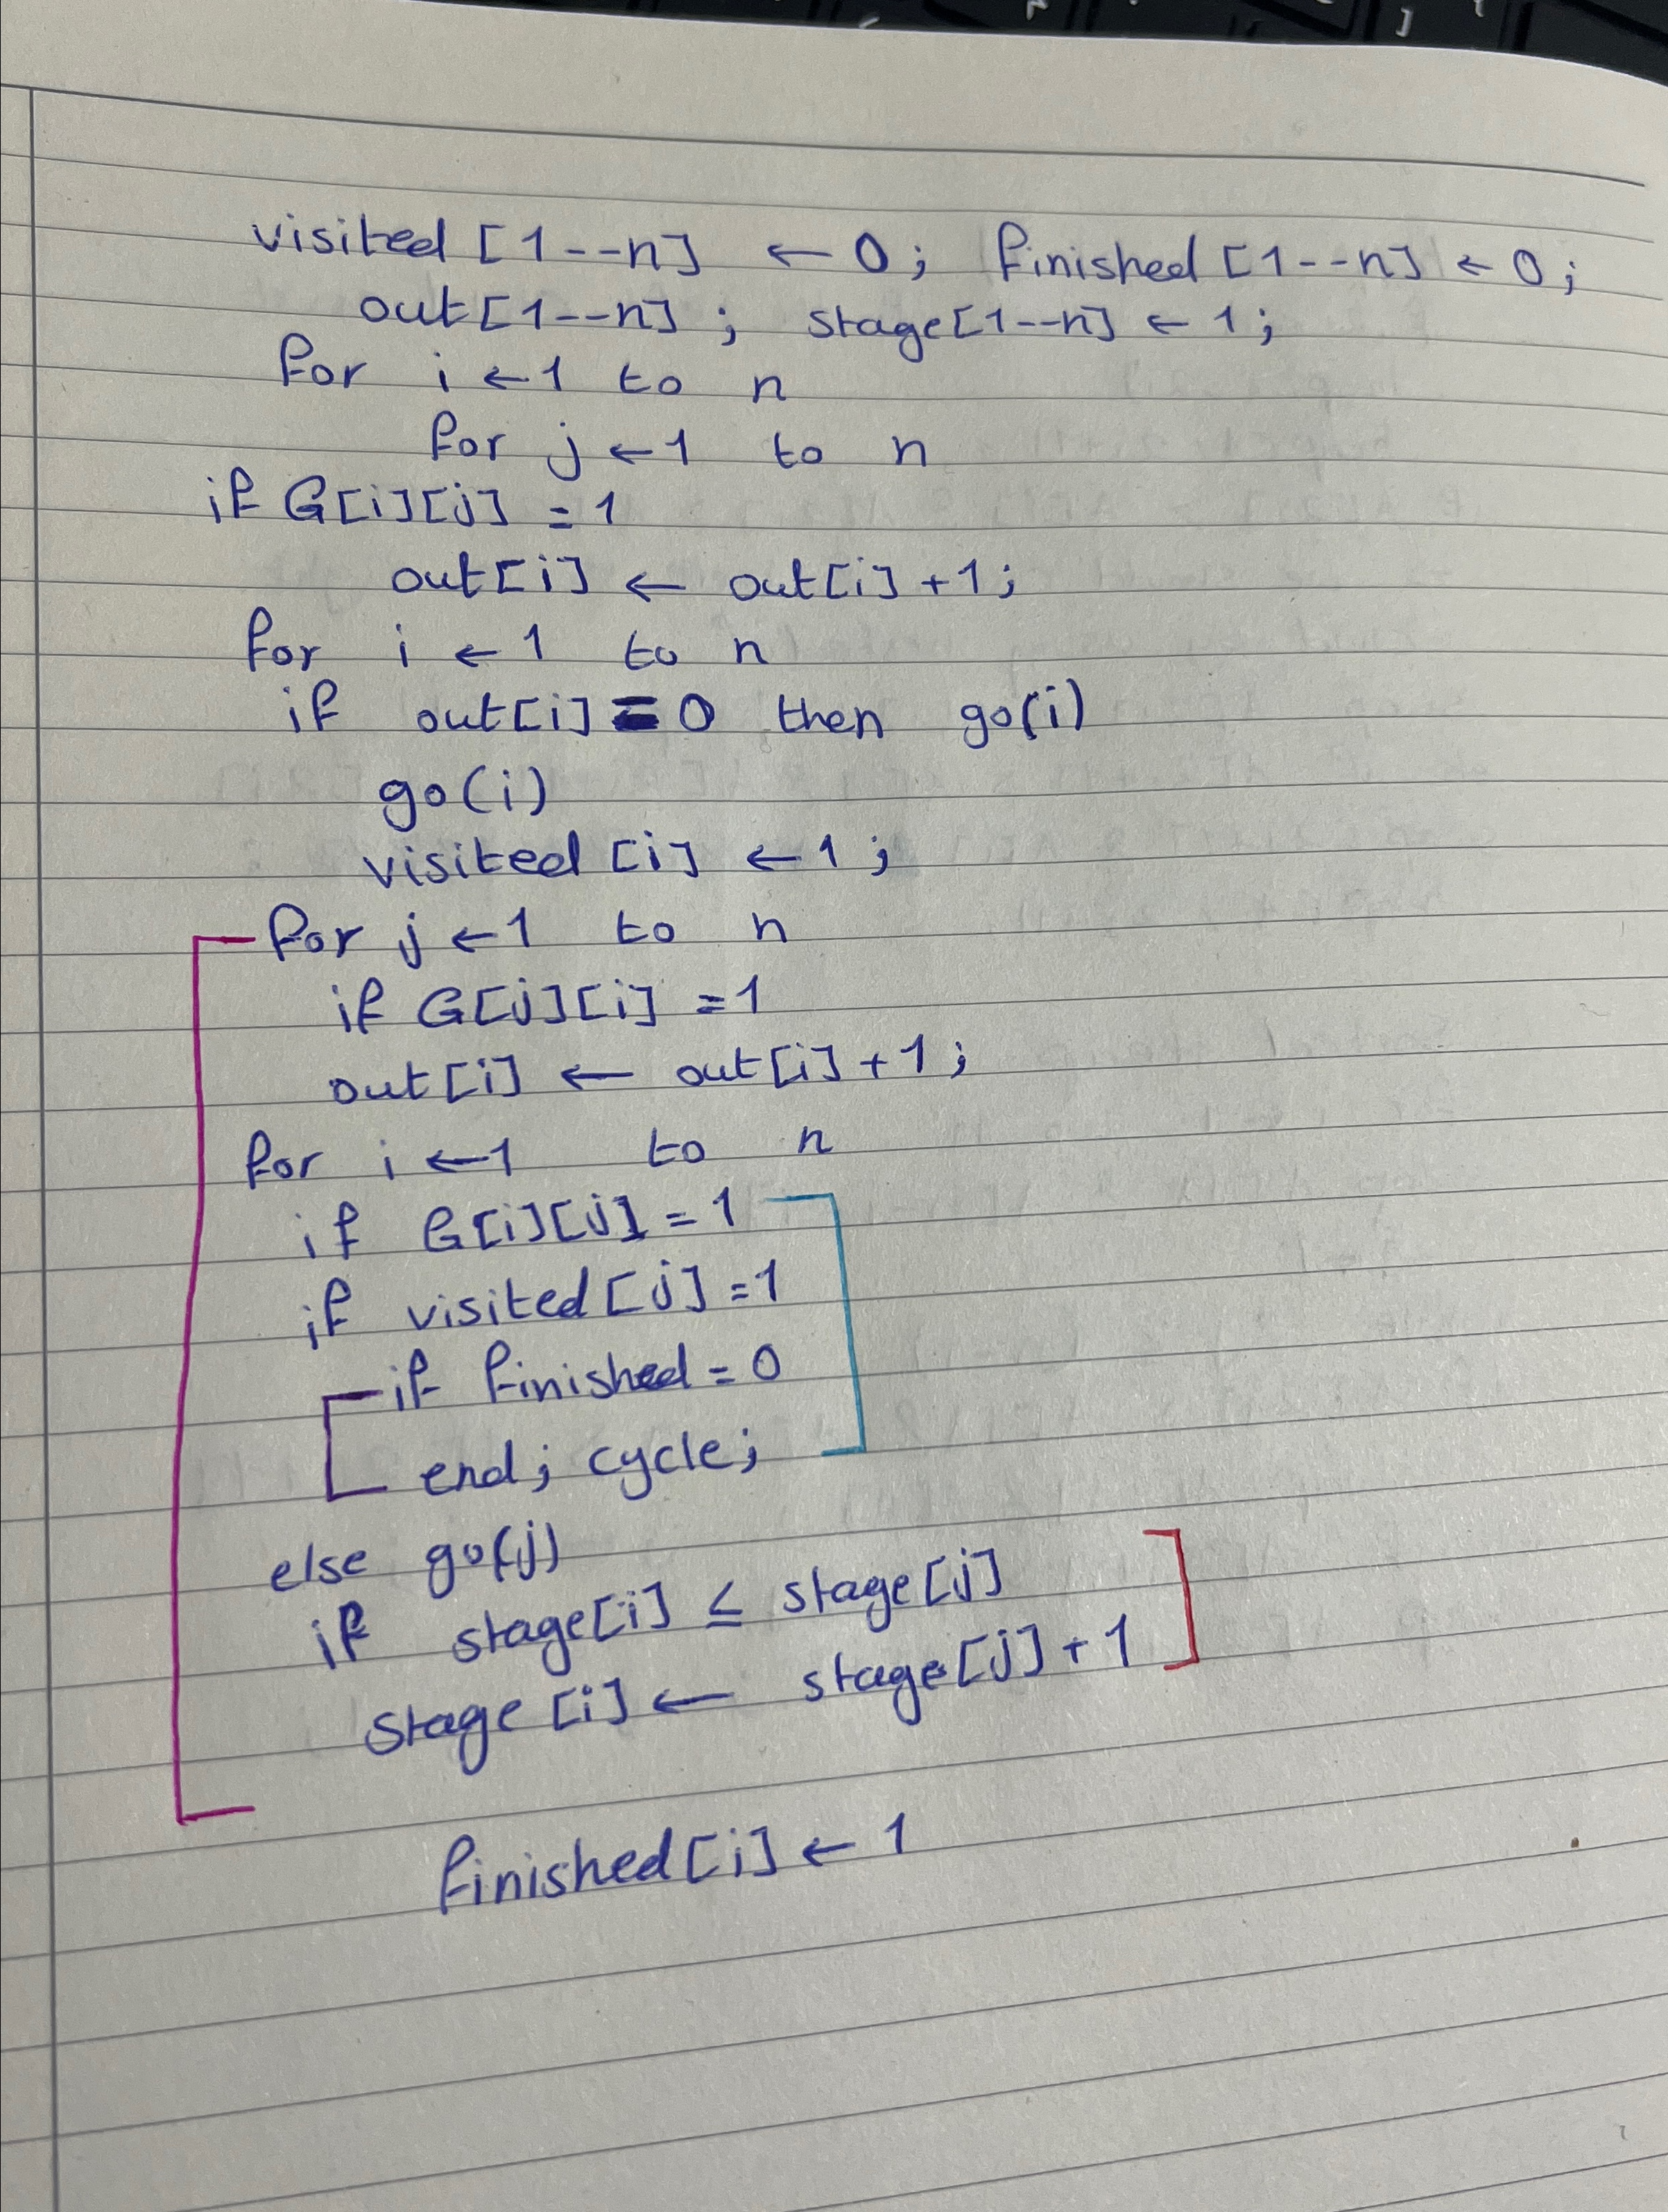 visited [1--n] ← 0; finished [1--n] ← 0;
out[1--n]; stage[1--n] ← 1;
for i ← 1 to n
for j ← 1 to n
if G[i][j] = 1
out[i] ← out[i] + 1;
for i ← 1 to n
if out[i] = 0 then go(i)
go(i)
visited [i] ← 1;
for j ← 1 to n
if G[j][i] = 1
out[i] ← out[i] + 1;
for i ← 1 to n
if G[i][j] = 1
if visited[j] = 1
if finished = 0
end; cycle;
else go(j)
if stage[i] ≤ stage[j]
stage [i] ← stage[j] + 1
finished[i] ← 1